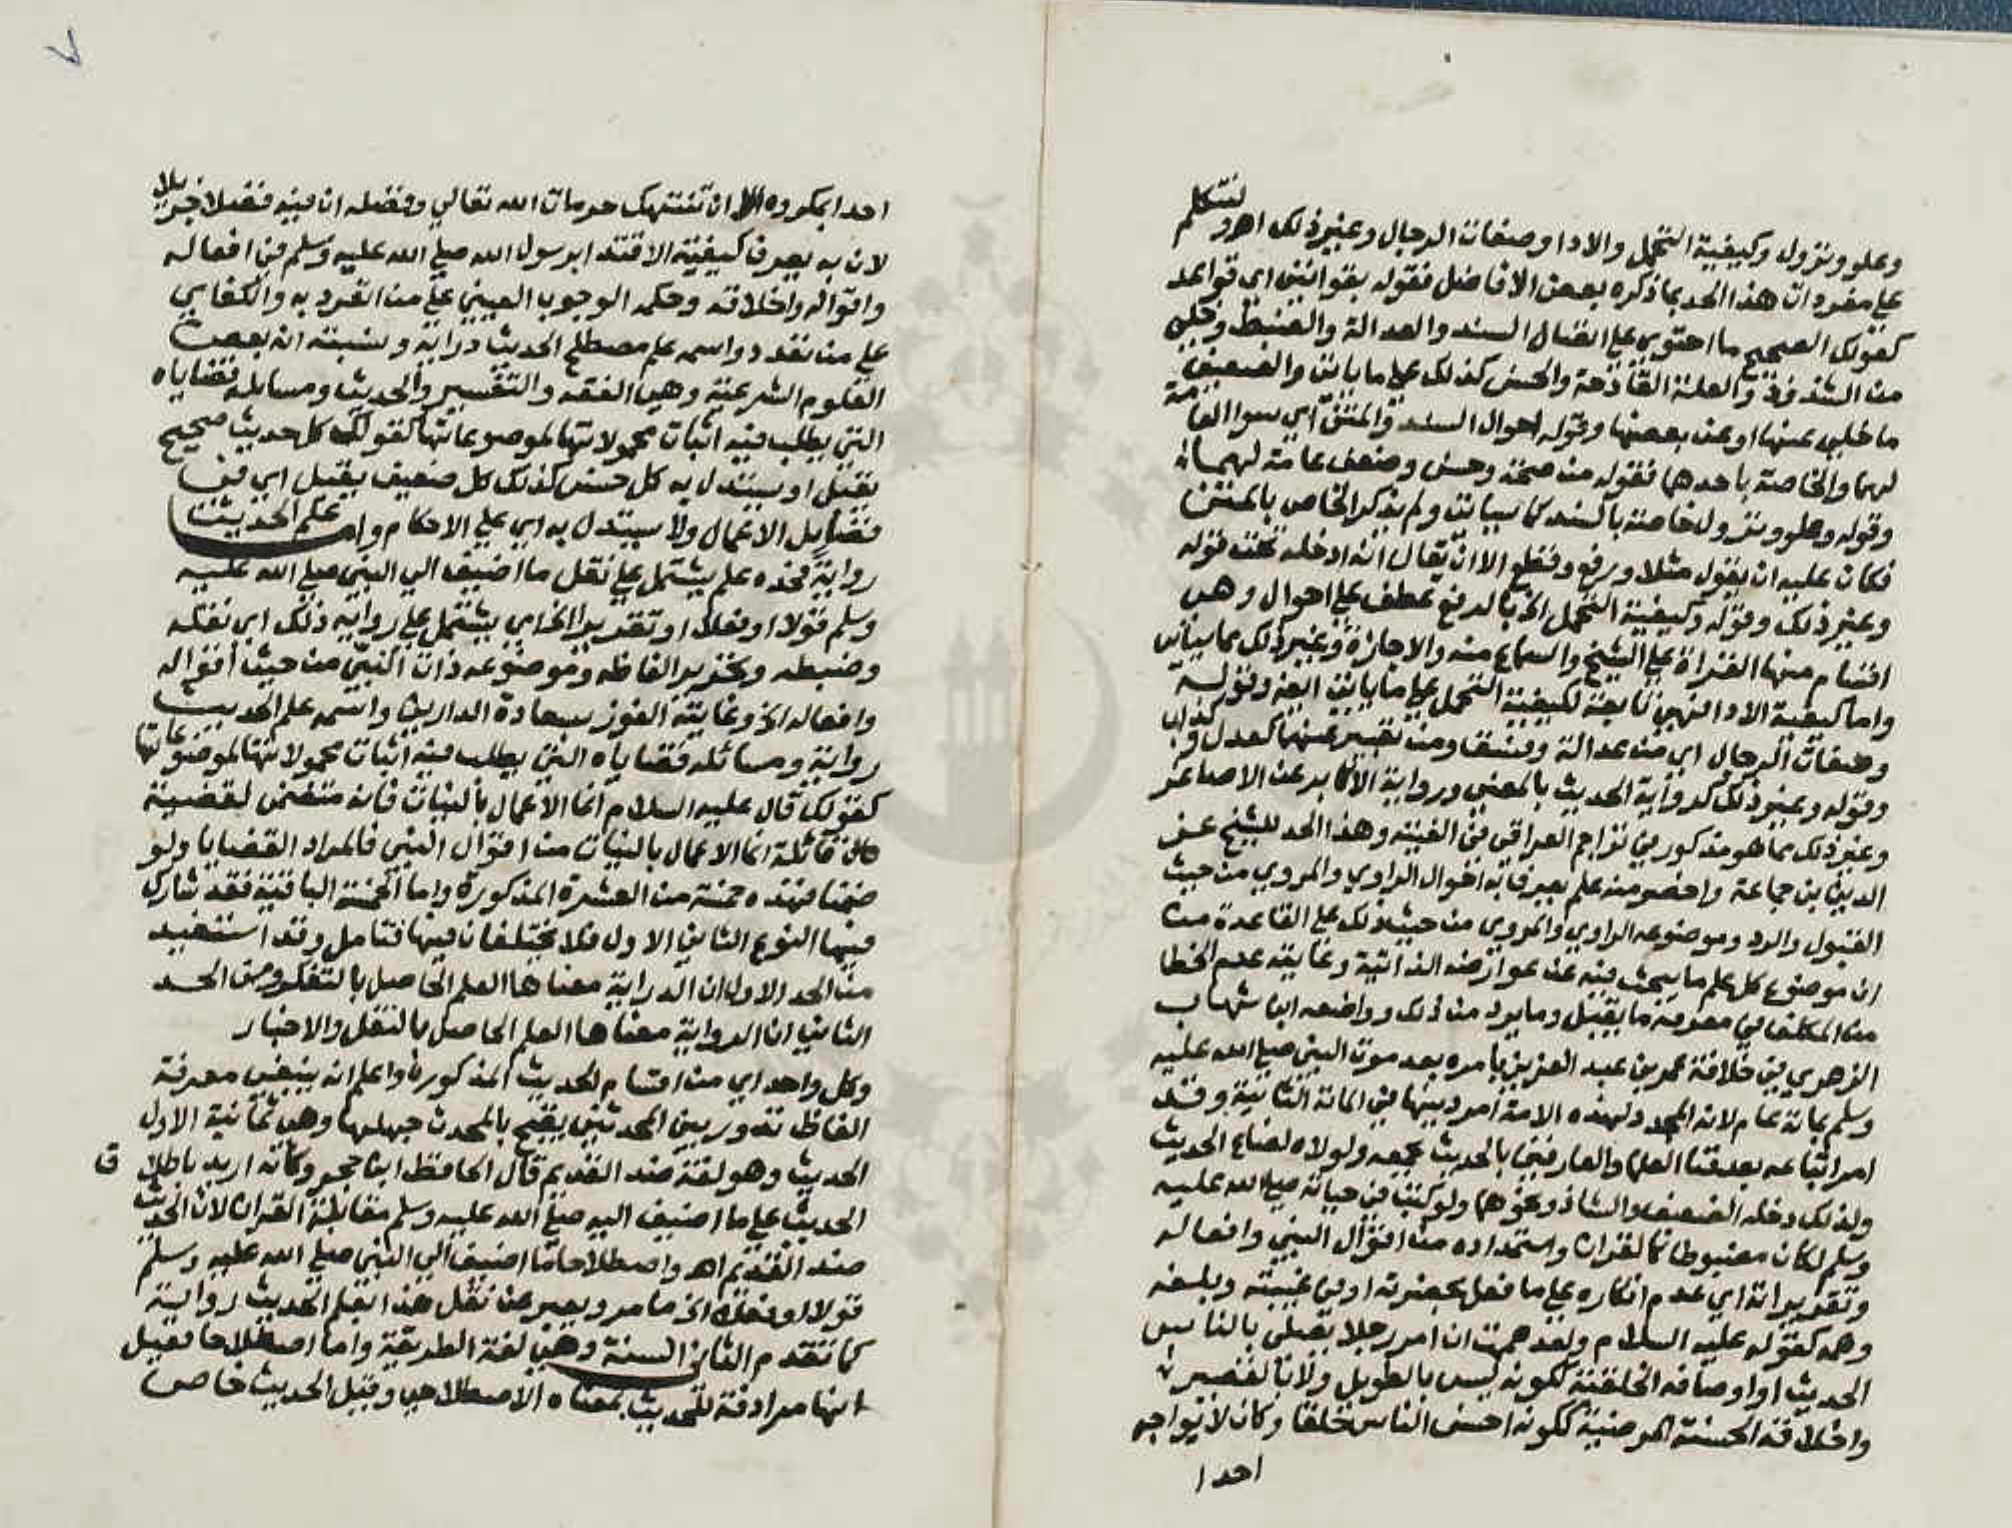 وعلو ونزول وكيفية التحمل والادا وصفات الرجال وغير ذلك اهـ ولنتكلم
على مفردات هذا الحد بما ذكره بعض الافاضل فقوله بقوانين اي قواعد
كقولك الصحيح ما احتوى على اتصال السند والعدالة والضبط وخلي
من الشذوذ والعلة القادحة والحسن كذلك على ما ياتي والضعيف
ما خلي عنها او عن بعضها وقوله احوال السند والمتن اي سوا العامة
لهما والخاصة باحدهما فقوله من صحة وحسن وضعف عامة لهما
وقوله وعلو ونزول خاصة بالسند كما سياتي ولم يذكر الخاص بالمتن
فكان عليه ان يقول مثلا ورفع وقطع الا ان يقال انه ادخله تحت قوله
وغير ذلك وقوله وكيفية التحمل الخ بالرفع عطف على احوال وهي
اقسام منها القراة على الشيخ والسماع منه والاجازة وغير ذلك مما سياتي
واما كيفية الادا فهي تابعة لكيفية التحمل على ما ياتي ايضه وقوله
وصفات الرجال اي من عدالة وفسق ومن تعبير عنها كعدل وكذاب
وقوله وغير ذلك كرواية الحديث بالمعنى ورواية الاكابر عن الاصاغر
وغير ذلك مما هو مذكور في تراجم العراقي في الفيته وهذا الحد للشيخ عز
الدين بن جماعة واخصر منه علم يعرف به احوال الراوي والمروي من حيث
القبول والرد وموضوعه الراوي والمروي من حيث ذلك على القاعدة من
ان موضوع كل علم ما يبحث فيه عن عوارضه الذاتية وغايته عدم الخطا
من المكلف في معرفة ما يقبل وما يرد من ذلك وواضعه ابن شهاب
الزهري في خلافة عمر بن عبد العزيز بامره بعد موت النبي صلى الله عليه
وسلم بماية عام لانه المجدد لهذه الامة امر دينها في الماية الثانية وقد
امر اتباعه بعد فنا العلما والعارفين بالحديث بجمعه ولولاه لضاع الحديث
ولذلك دخله الضعيف والشاذ ونحوهما ولو كتب في حياته صلى الله عليه
وسلم لكان مضبوطا كالقران واستمداده من اقوال النبي وافعاله
وتقريراته اي عدم انكاره على ما فعل بحضرته او في غيبته وبلغه
وهمه كقوله عليه السلام ولقد هممت ان امر رجلا يصلي بالناس
الحديث او اوصافه الخلقية ككونه ليس بالطويل ولا بالقصير
واخلاقه الحسنة المرضية ككونه احسن الناس خلقا وكان لا يواجه
احدا
احدا بمكروه الا ان تنتهك حرمات الله تعالى وفضله ان فيه فضلا جزيلا
لان به يعرف كيفية الاقتدا برسول الله صلى الله عليه وسلم في افعاله
واقواله واخلاقه وحكمه الوجوب العيني على من انفرد به والكفاي
على من تعدد واسمه علم مصطلح الحديث دراية ونسبته انه بعض
العلوم الشرعية وهي الفقه والتفسير والحديث ومسايله قضاياه
التي يطلب فيه اثبات محمولاتها لموضوعاتها كقولك كل حديث صحيح
يقبل او يستدل به كل حسن كذلك كل ضعيف يقبل اي في
فضايل الاعمال ولا يستدل به اي على الاحكام واما علم الحديث
رواية فحده علم يشتمل على نقل ما اضيف الى النبي صلى الله عليه
وسلم قولا او فعلا او تقريرا الخ اي يشتمل على رواية ذلك اي نقله
وضبطه وتحرير الفاظه وموضوعه ذات النبي من حيث اقواله
وافعاله الخ وغايته الفوز بسعادة الدارين واسمه علم الحديث
رواية ومسائله قضاياه التي يطلب فيه اثبات محمولاتها لموضوعاتها
كقولك قال عليه السلام انما الاعمال بالنيات فانه متضمن لقضية
قائلة انما الاعمال بالنيات من اقوال النبي فالمراد القضايا ولو
ضمنا فهذه خمسة من العشرة المذكورة واما الخمسة الباقية فقد شارك
فيها النوع الثاني الاول فلا يختلفان فيها فتامل وقد استفيد
من الحد الاول ان الدراية معناها العلم الحاصل بالتفكر ومن الحد
الثاني ان الرواية معناها العلم الحاصل بالنقل والاخبار
وكل واحد اي من اقسام الحديث المذكورة واعلم انه ينبغي معرفة
الفاظ تدور بين المحدثين يقبح بالمحدث جهلها وهي ثمانية الاول
الحديث وهو لغة ضد القديم قال الحافظ ابن حجر وكانه اريد باطلاق
الحديث على ما اضيف اليه صلى الله عليه وسلم مقابلة القران لان الحديث
ضد القديم اهـ واصطلاحا ما اضيف الى النبي صلى الله عليه وسلم
قولا او فعلا الخ ما مر ويعبر عن نقل هذا بعلم الحديث رواية
كما تقدم الثاني السنة وهي لغة الطريقة واما اصطلاحا فقيل
انها مرادفة للحديث بمعناه الاصطلاحي وقيل الحديث خاص